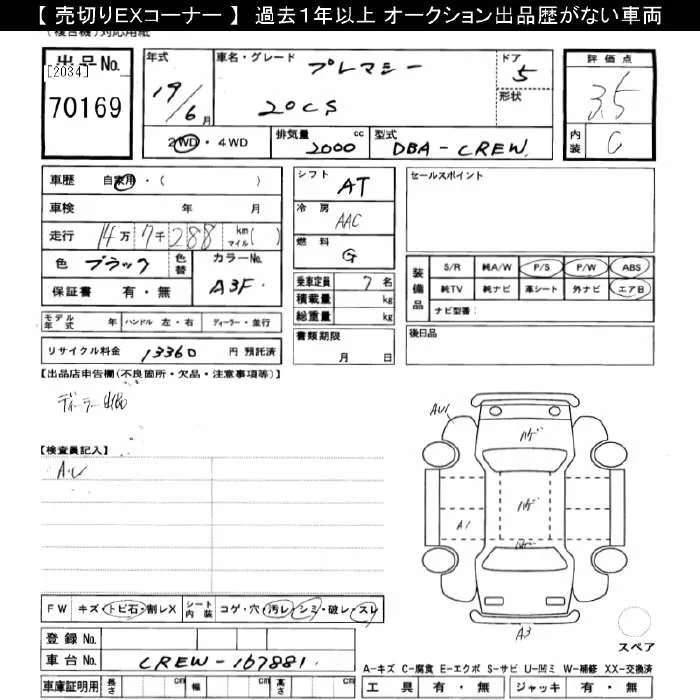 【 売切りＥＸコーナー 】 過去１年以上 オークション出品歴がない車両
(複合機)対応用紙
出品No.
[2034]
70169
年式
19/6月
車名・グレード
プレマシー
20CS
ドア
5
形状
評価点
3.5
内装
C
2WD・4WD
排気量 2000 cc
型式 DBA-CREW
車歴 自家用・( )
車検 年 月
走行 14万7千288 km マイル( )
色 ブラック 色替 カラーNo. A3F
保証書 有・無
モデル年式 年 ハンドル 左・右 ディーラー・並行
リサイクル料金 13360 円 預託済
シフト AT
冷房 AAC
燃料 G
乗車定員 7 名
積載量 kg
総重量 kg
書類期限
月 日
セールスポイント
装備品
S/R 純A/W P/S P/W ABS
純TV 純ナビ 革シート 外ナビ エアB
ナビ型番:
後日品
【出品店申告欄(不良箇所・欠品・注意事項等)】
ディーラー出品
【検査員記入】
AU
AU1
ハゲ
ハゲ
A1
ハゲ
A3
スペア
FW キズ・トビ石・割レX シート内装 コゲ・穴・汚レ・シミ・破レ・スレ
登録 No.
車台 No. CREW-167881
車庫証明用 長さ cm 幅 cm 高さ cm
A-キズ C-腐食 E-エクボ S-サビ U-凹ミ W-補修 XX-交換済
工具 有・無 ジャッキ 有・無